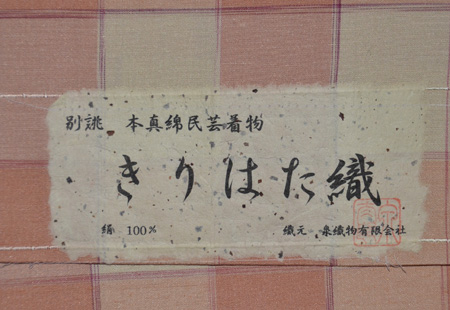 別誂 本真綿民芸着物
きりはた織
絹 100%
織元 泉織物有限会社